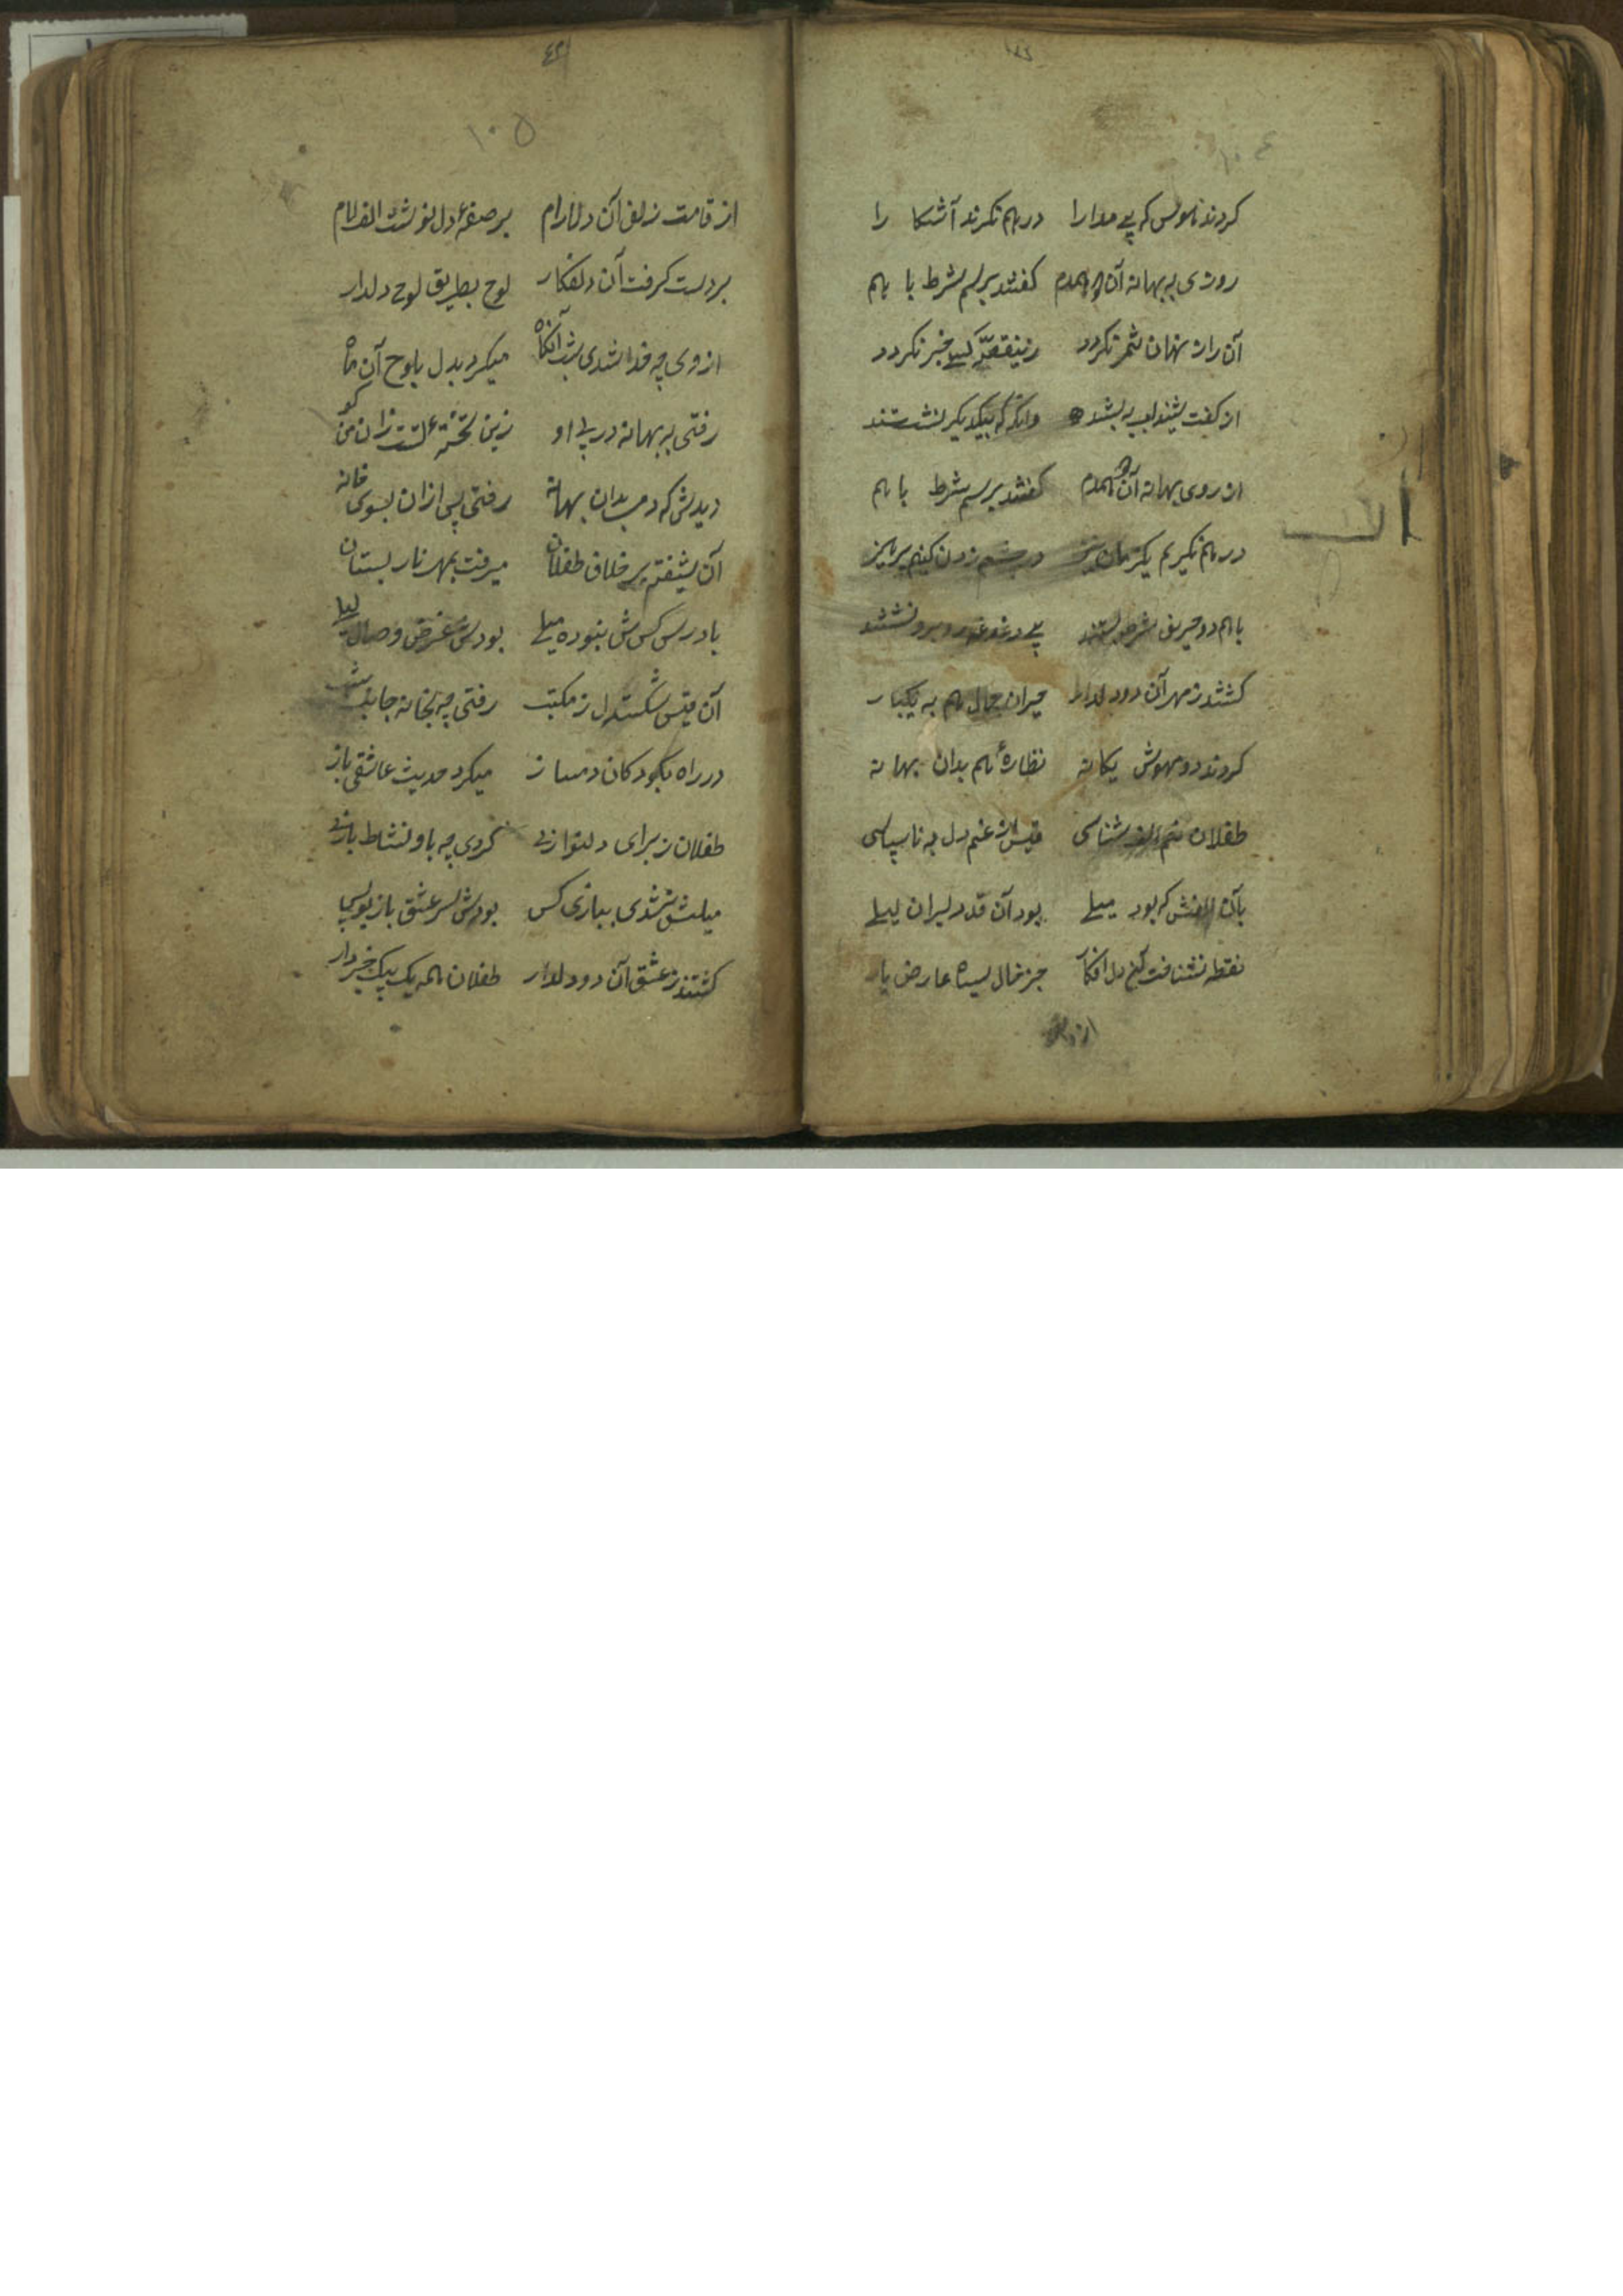 ۱۰۴
کردند ناموس که پی مدارا در هم نکرند آشکا را
روزی به بهانه آن دو همدم کفتند برسم شرط با هم
آن راز نهان ثمر نکردد زینقصّه کسی خبر نکردد
از کفت شنید لب به بستند وانکه که بیکدیکر نشستند
از روی بهانه آن دو همدم کفتند برسم شرط با هم
در هم نکیریم یکزمان تیز در چشم زدن کنیم پرهیز
با هم دو حریف شرط بستند بی دغدغه روبرو نشستند
کشتند ز مهر آن دو دلدار حیران جمال هم به یکبار
کردند دو مهوش یکانه نظارهٔ هم بدان بهانه
طفلان الف شناسی قیس از غم دل به ناسپاسی
بآن الفش که بود میلی بود آن قد دلبران لیلی
نقطه نشناخت آن دل افکار جز خال سیاه عارض یار
از قامت
۱۰۵
از قامت زلف آن دلارام بر صفحهٔ دل نوشت الف لام
بر دست کرفت آن دلفکار لوح بطریق لوح دلدار
از وی چه فدا شدی شب آنکاه میکرد بدل بلوح آن ماه
رفتی به بهانه در پی او زین تختهٔ تست زان من کو
دیدش که بدان بهانه رفتی پس ازان بسوی خانه
آن شیفته بر خلاف طفلان میرفت بمهر نار بستان
با درس کس ش نبوده میلی بودش غرض وصال لیلی
آن قیس شکسته دل ز مکتب رفتی چه بخانه جانب شب
در راه بکودکان دمساز میکرد حدیث عاشقی باز
طفلان ز برای دلنوازی کردی چه باو نشاط بازی
میلش نشدی ببازی کس بودش سر عشق باز
کشتند ز عشق آن دو دلدار طفلان همه یک بیک خبردار